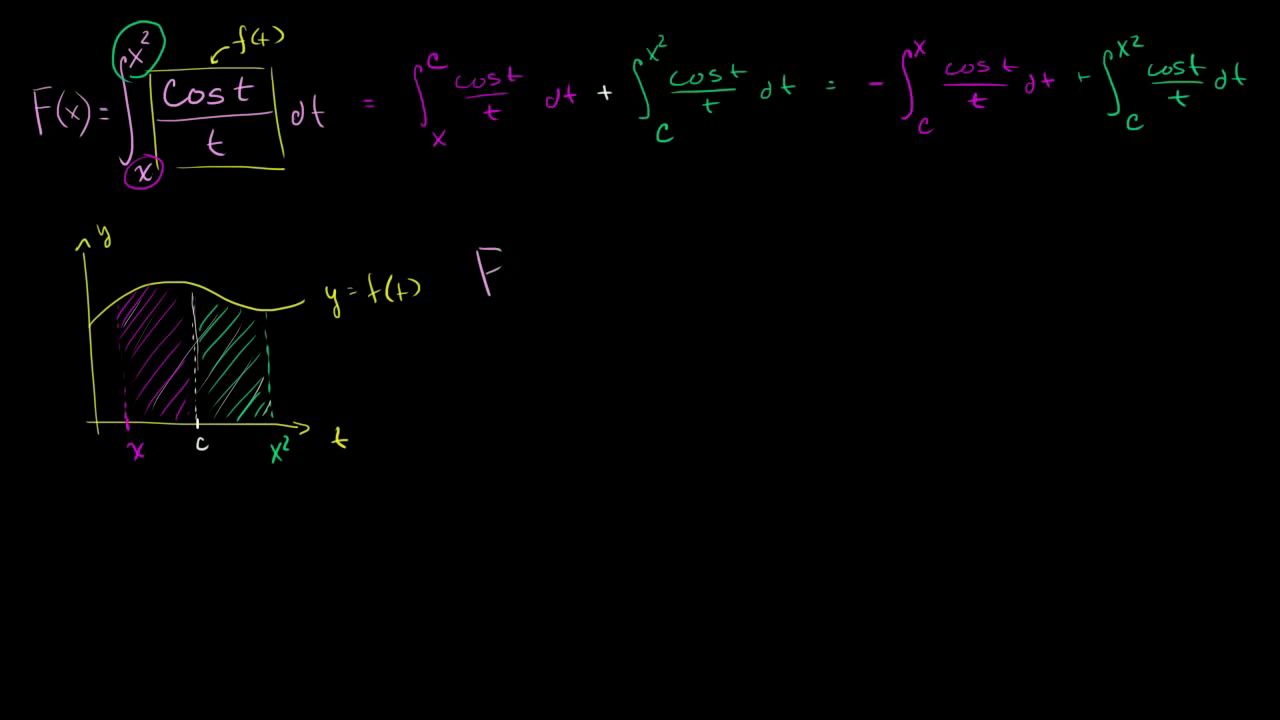 F(x) = ∫_x^{x²} cos t / t dt = ∫_x^c cos t / t dt + ∫_c^{x²} cos t / t dt = - ∫_c^x cos t / t dt + ∫_c^{x²} cos t / t dt
f(t)
y
y = f(t)
F
x c x² t